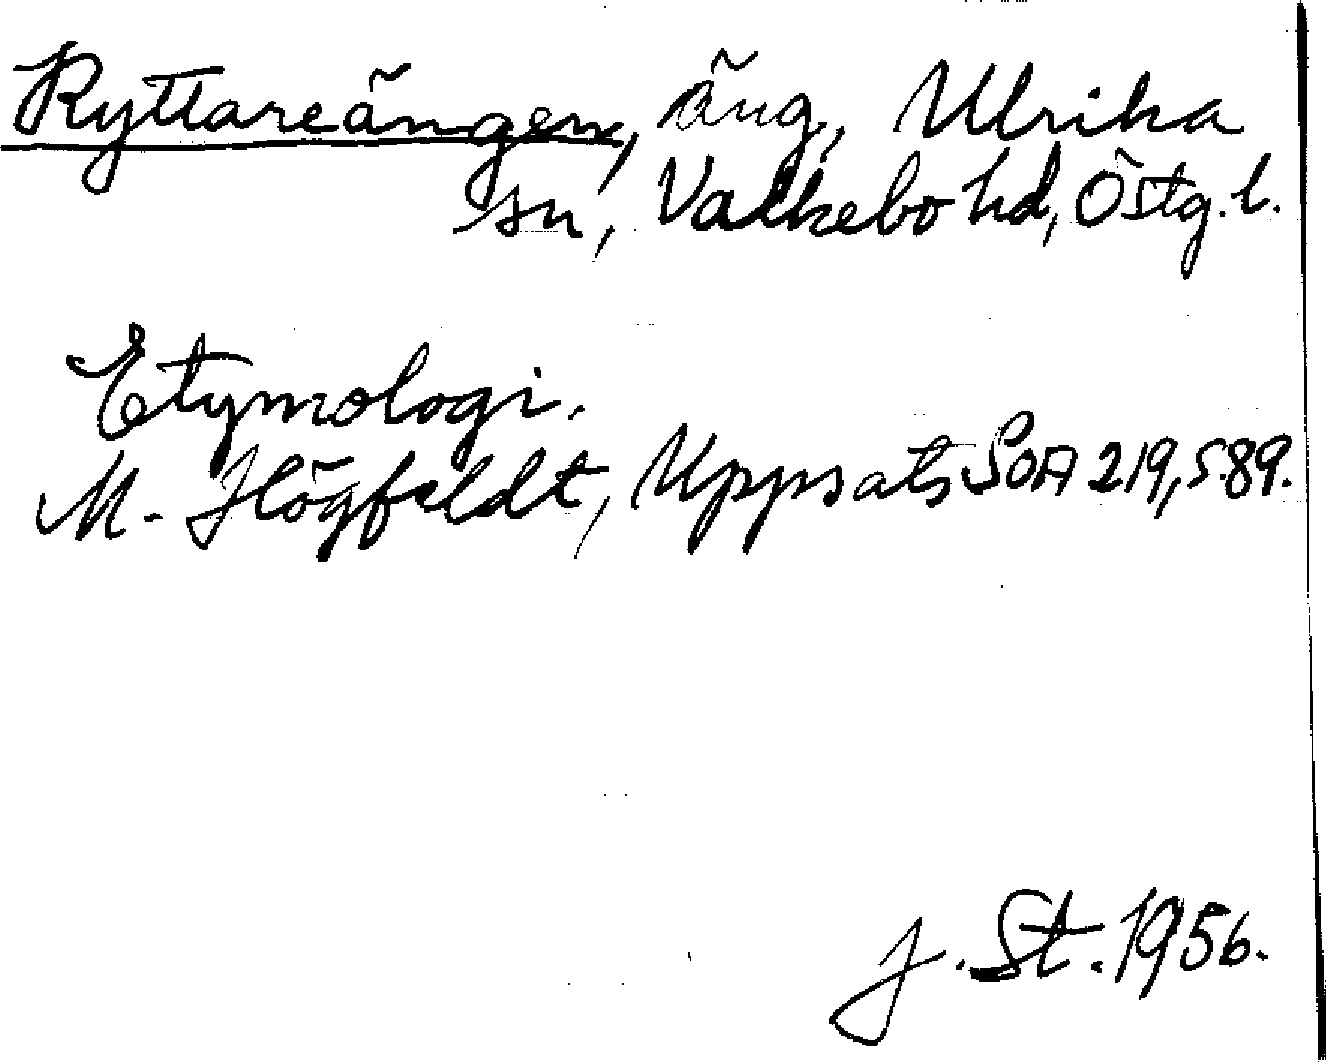 Ryttareängen, äng, Ulrika
sn, Valkebo hd, Östg. l.
Etymologi.
M. Högfeldt, Uppsats SOA 219, s 89.
J. St. 1956.